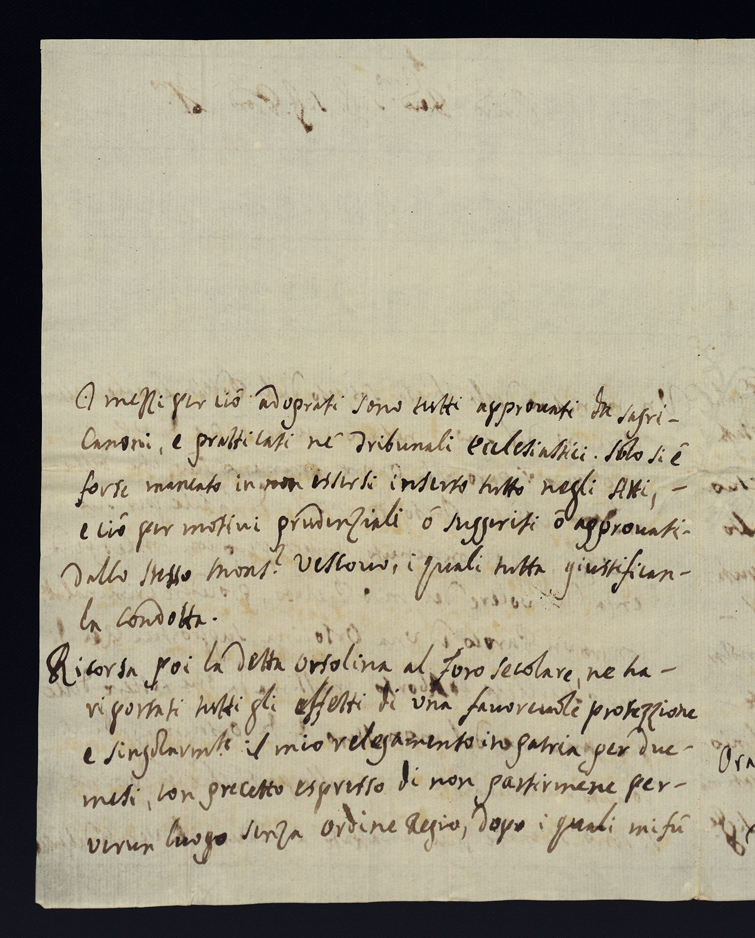 I mezzi per ciò adoprati sono tutti approuati da sagri-
Canoni, e pratticati ne Tribunali Ecclesiastici. Solo si è
forse mancato in non essersi inserto tutto negli Atti, -
e ciò per motiui prudenziali ò suggeriti ò approuati-
dallo stesso Mons.r Vescouo, i quali tutta giustifican-
la condotta.
Ricorsa poi la detta Orsolina al Foro secolare, ne ha-
riportati tutti gli effetti di una fauoreuole protezzione
e singolarmte il mio relegamento in patria per due-
mesi, con precetto espresso di non partirmene per-
verun luogo senza ordine Regio, dopo i quali mi fù
Ora